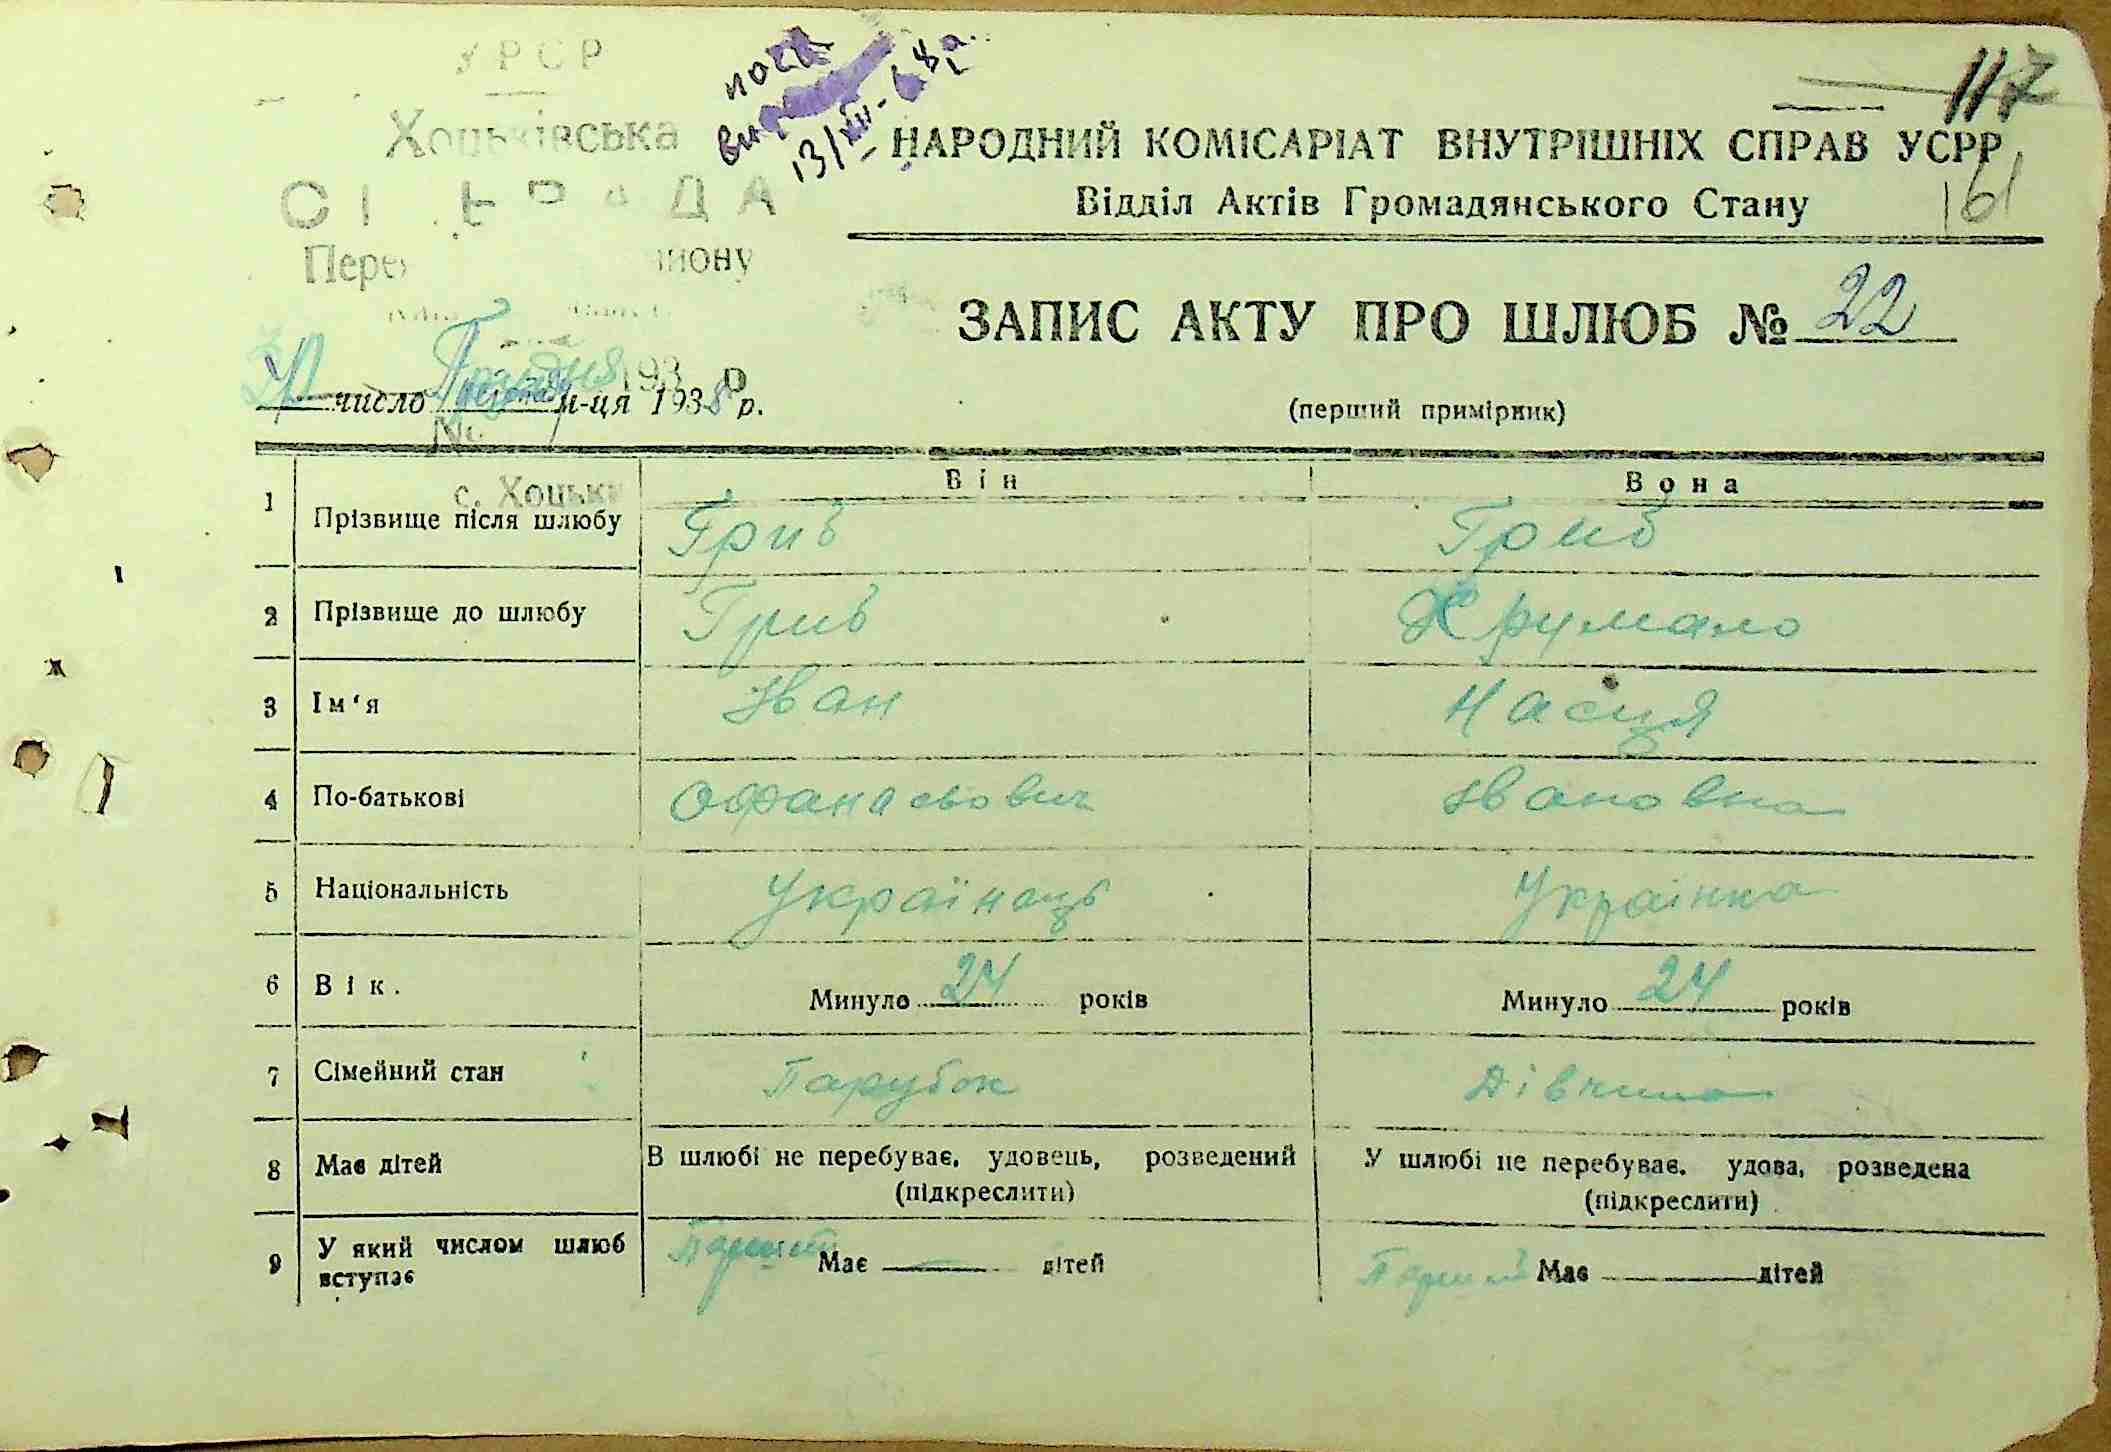 УРСР
Хоцьківська
СІ РАДА
Пере йону
посв
13/XII-68 р.
117
161
НАРОДНИЙ КОМІСАРІАТ ВНУТРІШНІХ СПРАВ УСРР
Відділ Актів Громадянського Стану
ЗАПИС АКТУ ПРО ШЛЮБ № 22
(перший примірник)
число Грудня м-ця 1938 р.
193 р
№
с. Хоцьки
Він Вона
1 Прізвище після шлюбу Гриб Гриб
2 Прізвище до шлюбу Гриб Хрумало
3 Ім‘я Іван Насця
4 По-батькові Офанасьович Івановна
5 Національність Українець Українка
6 Вік. Минуло 24 років Минуло 24 років
7 Сімейний стан Парубок Дівчина
8 Має дітей В шлюбі не перебуває, удовець, розведений (підкреслити) У шлюбі не перебуває, удова, розведена (підкреслити)
9 У який числом шлюб вступає Перший Має дітей Перший Має дітей